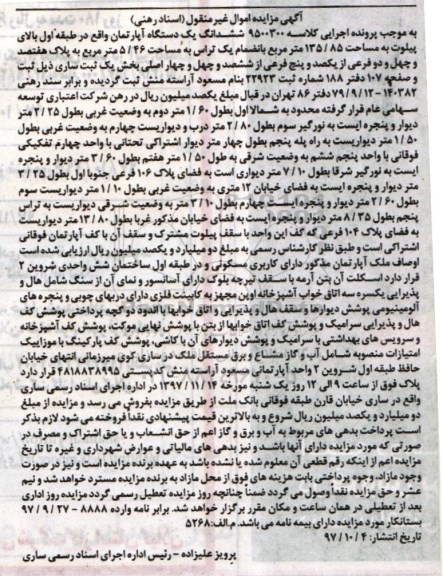 آگهی مزایده اموال غیرمنقول (اسناد رهنی)
به موجب پرونده اجرایی کلاسه ۹۵۰۰۳۰۰ ششدانگ یک دستگاه آپارتمان واقع در طبقه اول بالای
پیلوت به مساحت ۱۳۵/۸۵ متر مربع بانضمام یک تراس به مساحت ۵/۴۶ متر مربع به پلاک هفتصد
و چهل و دو فرعی از یکصد و پنج فرعی از ششصد و چهل و چهار اصلی بخش یک ثبت ساری ذیل ثبت
و صفحه ۱۰۷ دفتر ۱۸۸ شماره ثبت ۲۲۹۲۳ بنام مسعود آراسته منش ثبت گردیده و برابر سند رهنی
۱۴۰۳۸۲ - ۷۹/۹/۱۲ دفتر ۸۶ تهران در قبال مبلغ یکصد میلیون ریال در رهن شرکت اعتباری توسعه
سهامی عام قرار گرفته محدود به شمالا اول بطول ۱/۶۰ متر دوم به وضعیت غربی بطول ۲/۲۵ متر
دیوار و پنجره ایست به نورگیر سوم بطول ۲/۸۰ متر درب و دیواریست چهارم به وضعیت غربی بطول
۱/۵۰ متر دیواریست به راه پله پنجم بطول چهار متر دیوار اشتراکی تحتانی با واحد چهارم تفکیکی
فوقانی با واحد پنجم ششم به وضعیت شرقی به طول ۱/۵۰ متر هفتم بطول ۳/۶۰ متر دیوار و پنجره
ایست به نورگیر شرقا بطول ۷/۱۰ متر دیواری است به فضای پلاک ۱۰۶ فرعی جنوبا اول بطول ۳/۲۵
متر دیوار و پنجره ایست به فضای خیابان ۱۲ متری به وضعیت غربی بطول ۱/۱۰ متر دیواریست سوم
بطول ۲/۶۰ متر دیوار و پنجره ایست چهارم بطول ۳/۱۰ متر به وضعیت شرقی دیواریست به تراس
پنجم بطول ۸/۳۵ متر دیوار و پنجره ایست به فضای خیابان مذکور غربا بطول ۱۳/۸۰ متر دیواریست
به فضای پلاک ۱۰۴ فرعی که کف این واحد با سقف پیلوت مشترک و سقف آن با کف آپارتمان فوقانی
اشتراکی است و طبق نظر کارشناس رسمی به مبلغ دو میلیارد و یکصد میلیون ریال ارزیابی شده است
اوصاف ملک آپارتمان مذکور دارای کاربری مسکونی و در طبقه اول ساختمان شش واحدی شروین ۲
قرار دارد اسکلت آن بتن آرمه با سقف تیرچه بلوک دارای آسانسور و نمای آن از سنگ شامل هال و
پذیرایی یکسره سه اتاق خواب آشپزخانه اوپن مجهز به کابینت فلزی دارای دربهای چوبی و پنجره های
آلومینیومی پوشش دیوارها و سقف هال و پذیرایی و اتاق خوابها با اندود دو گچه پرداختی پوشش کف
هال و پذیرایی سرامیک و پوشش کف اتاق خوابها از بتن با پوشش نهایی موکت، پوشش کف آشپزخانه
و سرویس های بهداشتی با سرامیک و پوشش دیوارهای آن با کاشی، پوشش کف پارکینگ با موزاییک
امتیازات منصوبه شامل آب و گاز مشاع و برق مستقل ملک در ساری کوی میرزمانی انتهای خیابان
حافظ طبقه اول شروین ۲ واحد آپارتمانی مسعود آراسته منش کدپستی ۴۸۱۸۸۳۸۹۹۵ قرار دارد
پلاک فوق از ساعت ۹ الی ۱۲ روز یک شنبه مورخه ۱۳۹۷/۱۱/۱۴ در اداره اجرای اسناد رسمی ساری
واقع در ساری خیابان قارن طبقه فوقانی بانک ملت از طریق مزایده بفروش می رسد و مزایده از مبلغ
دو میلیارد و یکصد میلیون ریال شروع و به بالاترین قیمت پیشنهادی نقداً فروخته می شود لازم بذکر
است پرداخت بدهی های مربوط به آب و برق و گاز اعم از حق انشعاب و یا حق اشتراک و مصرف در
صورتی که مورد مزایده دارای آنها باشد و نیز بدهی های مالیاتی و عوارض شهرداری و غیره تا تاریخ
مزایده اعم از اینکه رقم قطعی آن معلوم شده یا نشده باشد به عهده برنده مزایده است و نیز در صورت
وجود مازاد، وجوه پرداختی بابت هزینه های فوق از محل مازاد به برنده مزایده مسترد خواهد شد و نیم
عشر و حق مزایده نقداً وصول می گردد ضمناً چنانچه روز مزایده تعطیل رسمی گردد مزایده روز اداری
بعد از تعطیلی در همان ساعت و مکان مقرر برگزار خواهد شد. برابر نامه وارده ۸۸۸۸ - ۹۷/۹/۲۷
بستانکار مورد مزایده دارای بیمه نامه می باشد. م.الف:۵۲۶۸
تاریخ انتشار: ۹۷/۱۰/۴
پرویز علیزاده - رئیس اداره اجرای اسناد رسمی ساری